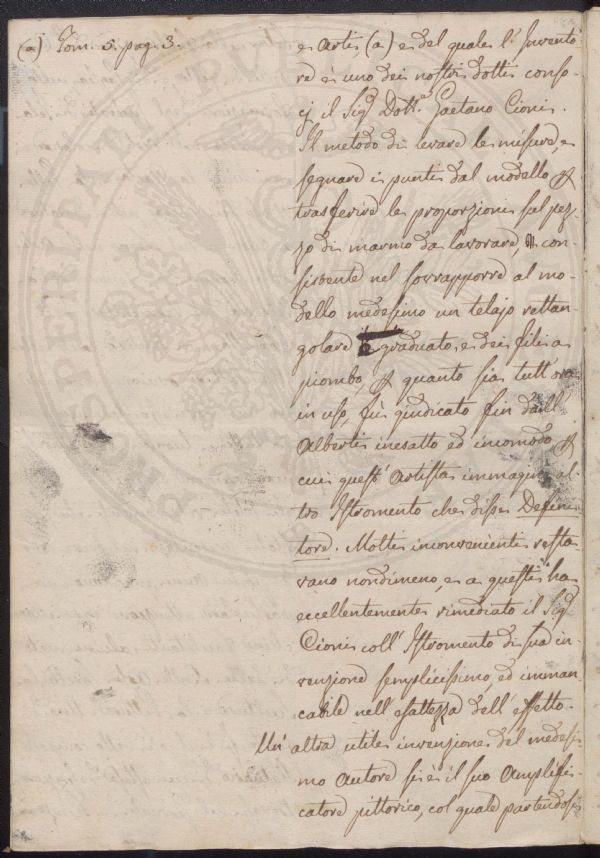 (a) Tom. 5. pag. 3.
e Arti, (a) e del quale l' Invento
re è uno dei nostri dotti conso
cj il Sig.r Dott.r Gaetano Cioni.
Il metodo di levare le misure, e
segnare i punti dal modello p
trasferire le proporzioni sul pez-
zo di marmo da lavorare, con
sistente nel sovrapporre al mo-
dello medesimo un telajo rettan-
golare graduato, e dei fili a
piombo, p quanto sia tutt'ora
in uso, fu giudicato fin dall'
Alberti inesatto ed incomodo, p
cui quest' Artista immaginò al-
tro Istromento che disse Defini
tore. Molti inconvenienti resta-
vano nondimeno, e a questi ha
eccellentemente rimediato il Sig.r
Cioni coll' Istromento di sua in-
venzione semplicissimo, ed imman
cabile nell' esattezza dell' effetto.
Un' altra utile invenzione del medesi-
mo Autore si è il suo Amplifi-
catore pittorico, col quale partendosi
PERPLEXA